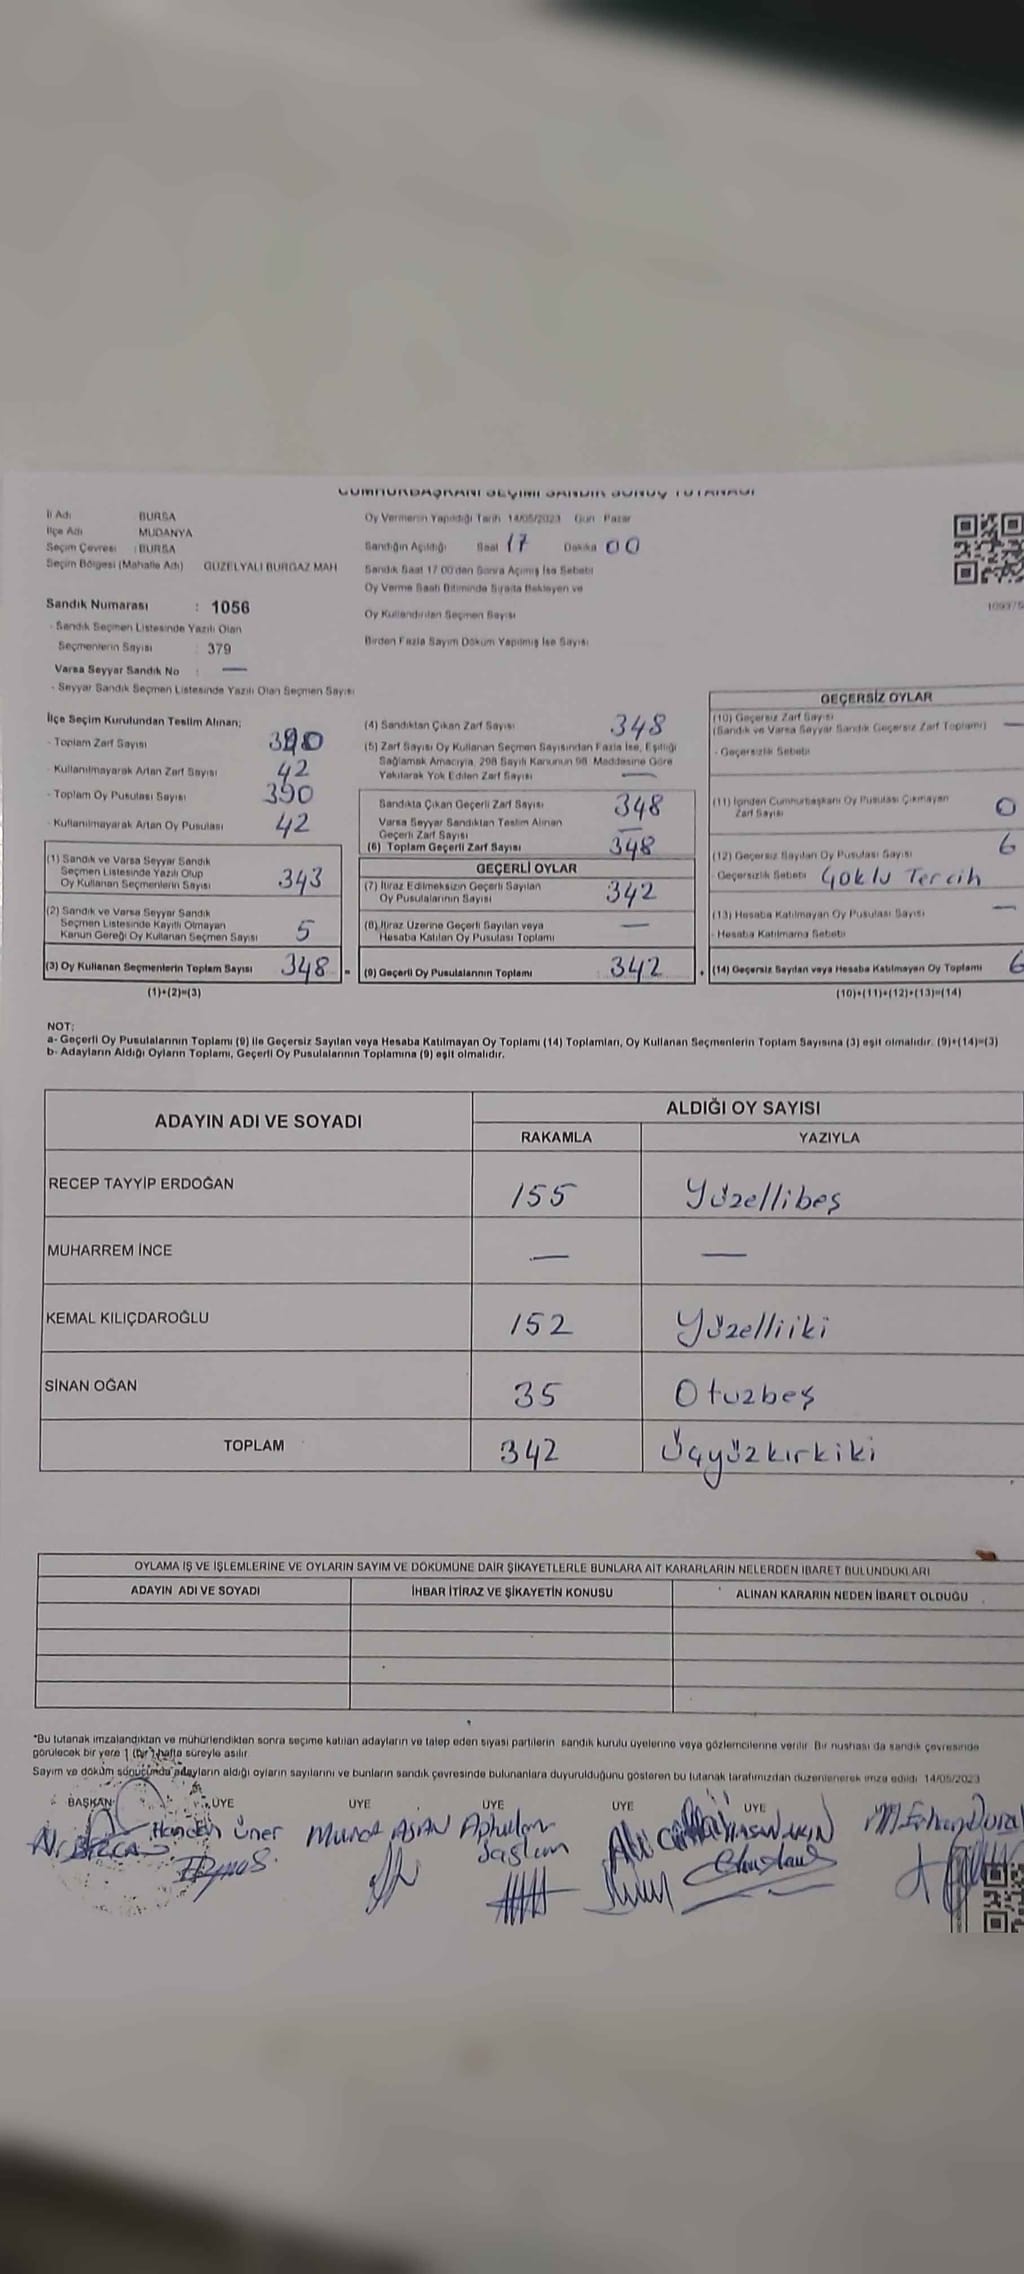 CUMHURBAŞKANI SEÇİMİ SANDIK SONUÇ TUTANAĞI
İl Adı BURSA
İlçe Adı MUDANYA
Seçim Çevresi : BURSA
Seçim Bölgesi (Mahalle Adı) GÜZELYALI BURGAZ MAH
Sandık Numarası : 1056
- Sandık Seçmen Listesinde Yazılı Olan
Seçmenlerin Sayısı : 379
Varsa Seyyar Sandık No : —
- Seyyar Sandık Seçmen Listesinde Yazılı Olan Seçmen Sayısı
Oy Vermenin Yapıldığı Tarih 14/05/2023 Gün Pazar
Sandığın Açıldığı Saat 17 Dakika 00
Sandık Saat 17.00'den Sonra Açılmış İse Sebebi
Oy Verme Saati Bitiminde Sırada Bekleyen ve
Oy Kullandırılan Seçmen Sayısı
Birden Fazla Sayım Döküm Yapılmış İse Sayısı
İlçe Seçim Kurulundan Teslim Alınan;
- Toplam Zarf Sayısı 390
- Kullanılmayarak Artan Zarf Sayısı 42
- Toplam Oy Pusulası Sayısı 390
- Kullanılmayarak Artan Oy Pusulası 42
(1) Sandık ve Varsa Seyyar Sandık
Seçmen Listesinde Yazılı Olup
Oy Kullanan Seçmenlerin Sayısı 343
(2) Sandık ve Varsa Seyyar Sandık
Seçmen Listesinde Kayıtlı Olmayan
Kanun Gereği Oy Kullanan Seçmen Sayısı 5
(3) Oy Kullanan Seçmenlerin Toplam Sayısı 348 =
(1)+(2)=(3)
(4) Sandıktan Çıkan Zarf Sayısı 348
(5) Zarf Sayısı Oy Kullanan Seçmen Sayısından Fazla İse, Eşitliği
Sağlamak Amacıyla, 298 Sayılı Kanunun 98. Maddesine Göre
Yakılarak Yok Edilen Zarf Sayısı —
Sandıkta Çıkan Geçerli Zarf Sayısı 348
Varsa Seyyar Sandıktan Teslim Alınan
Geçerli Zarf Sayısı —
(6) Toplam Geçerli Zarf Sayısı 348
GEÇERLİ OYLAR
(7) İtiraz Edilmeksizin Geçerli Sayılan
Oy Pusulalarının Sayısı 342
(8) İtiraz Üzerine Geçerli Sayılan veya
Hesaba Katılan Oy Pusulası Toplamı —
(9) Geçerli Oy Pusulalarının Toplamı 342 +
GEÇERSİZ OYLAR
(10) Geçersiz Zarf Sayısı
(Sandık ve Varsa Seyyar Sandık Geçersiz Zarf Toplamı) —
- Geçersizlik Sebebi
(11) İçinden Cumhurbaşkanı Oy Pusulası Çıkmayan
Zarf Sayısı 0
(12) Geçersiz Sayılan Oy Pusulası Sayısı 6
- Geçersizlik Sebebi Çoklu Tercih
(13) Hesaba Katılmayan Oy Pusulası Sayısı —
- Hesaba Katılmama Sebebi
(14) Geçersiz Sayılan veya Hesaba Katılmayan Oy Toplamı 6
(10)+(11)+(12)+(13)=(14)
NOT:
a- Geçerli Oy Pusulalarının Toplamı (9) ile Geçersiz Sayılan veya Hesaba Katılmayan Oy Toplamı (14) Toplamları, Oy Kullanan Seçmenlerin Toplam Sayısına (3) eşit olmalıdır. (9)+(14)=(3)
b- Adayların Aldığı Oyların Toplamı, Geçerli Oy Pusulalarının Toplamına (9) eşit olmalıdır.
ADAYIN ADI VE SOYADI ALDIĞI OY SAYISI
RAKAMLA YAZIYLA
RECEP TAYYİP ERDOĞAN 155 Yüzellibeş
MUHARREM İNCE — —
KEMAL KILIÇDAROĞLU 152 Yüzelliiki
SİNAN OĞAN 35 Otuzbeş
TOPLAM 342 Üçyüzkırkiki
OYLAMA İŞ VE İŞLEMLERİNE VE OYLARIN SAYIM VE DÖKÜMÜNE DAİR ŞİKAYETLERLE BUNLARA AİT KARARLARIN NELERDEN İBARET BULUNDUKLARI
ADAYIN ADI VE SOYADI İHBAR İTİRAZ VE ŞİKAYETİN KONUSU ALINAN KARARIN NEDEN İBARET OLDUĞU
*Bu tutanak imzalandıktan ve mühürlendikten sonra seçime katılan adayların ve talep eden siyasi partilerin sandık kurulu üyelerine veya gözlemcilerine verilir. Bir nushası da sandık çevresinde
görülecek bir yere 1 (bir) hafta süreyle asılır.
Sayım ve döküm sonucunda adayların aldığı oyların sayılarını ve bunların sandık çevresinde bulunanlara duyurulduğunu gösteren bu tutanak tarafımızdan düzenlenerek imza edildi. 14/05/2023
BAŞKAN ÜYE ÜYE ÜYE ÜYE ÜYE
Üner Murat